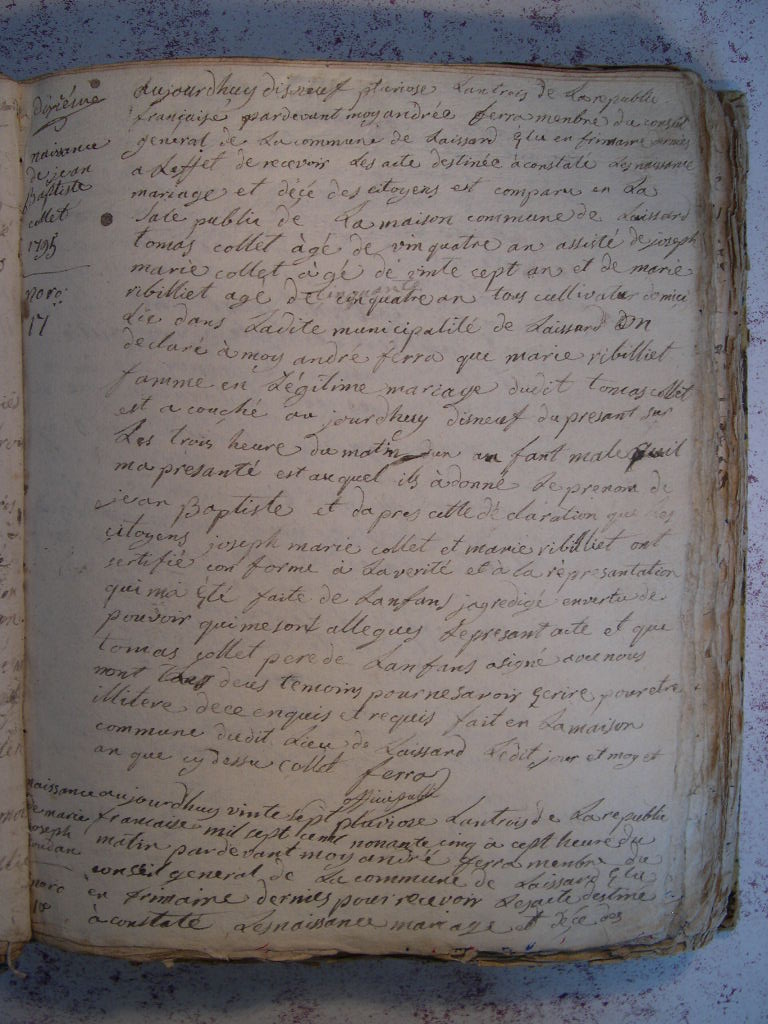 dixiéme
naissance
de jean
Baptiste
collet
1795
noro:
17
aujourdhuy disneuf pluviose Lantrois de La republi
française pardevant moy andrée ferra menbre du conseil
general de La commune de Laissard Elu en frimaire dernies
a Leffet de recevoir Les acte destinée à constaté Les naissance
mariage et décé des citoyens est comparu en La
Sale public de La maison commune de Laissard
tomas collet agé de vin quatre an assisté de joseph
marie collet agé de vinte cept an et de marie
ribilliet agé de cinquante quatre an tous cultivateur domici
Lié dans Ladite municipalité de Laissard On
declaré à moy andré ferra que marie ribilliet
famme en Légitime mariage dudit tomas collet
est a couché aujourdhuy disneuf du presant sur
Les trois heure du matin dun anfant male quil
ma presanté est auquel ils à donné Le prenom de
jean Baptiste et dapres cette déclaration que Les
citoyens joseph marie collet et marie ribilliet ont
sertifié conforme à La verité et à la représantation
qui ma Été faite de Lanfans jagredigé envertu de
pouvoir qui me sont allegues Le presant acte et que
tomas collet pere de Lanfans asigné avec nous
nont deus temoins pour ne savoir Ecrire pour etre
illitere de ce enquis et requis fait en La maison
commune dudit Lieu de Laissard Ledit jour et moy et
an que cy dessu collet ferra
officie publi
naissance
de marie
joseph
noro
18
aujourdhuy vinte sept pluviose Lantrois de La republi
francaise mil cept cent nonante cinq à cept heure du
matin pardevant moy andré ferra menbre du
conseil general de La commune de Laissard Elu
en frimaire dernies pour recevoir Les acte destine
à constaté Les naissance mariage et décé des